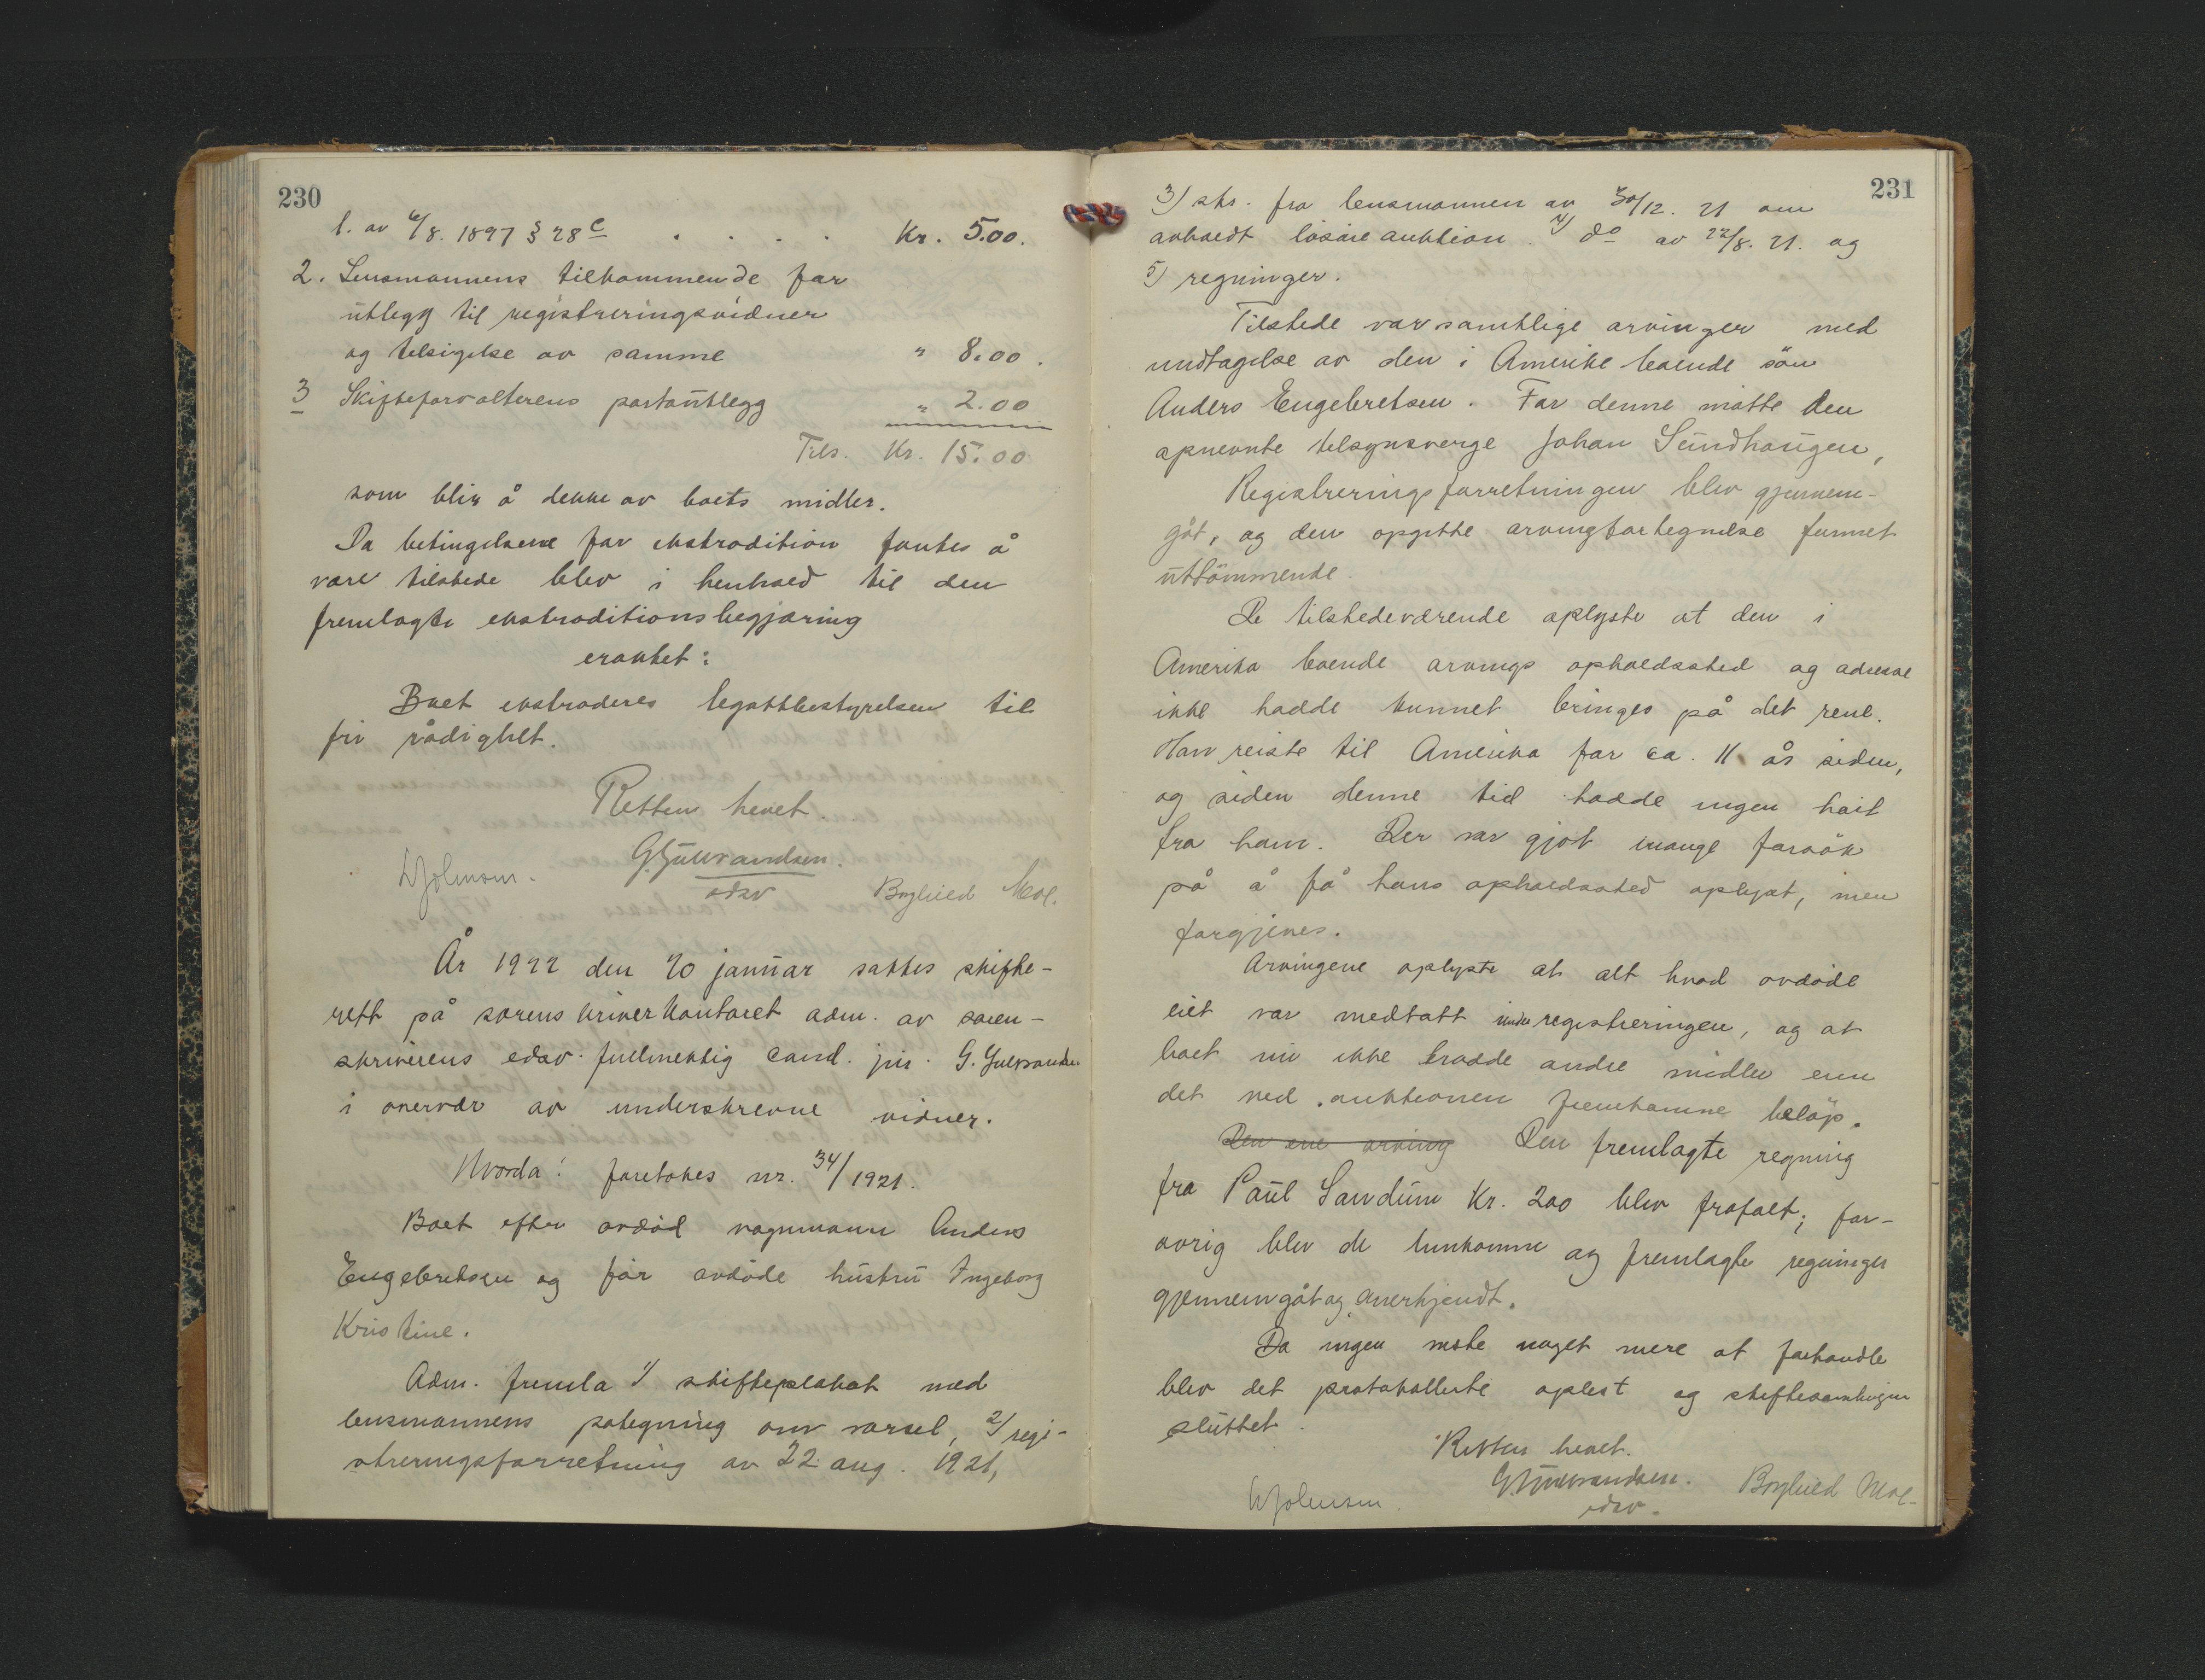 230
l. av 6/8. 1897 § 28 c . . . . Kr. 5.00.
2. Lensmannens tilkommende for
utlegg til registreringsvidner
og tilsigelse av samme " 8.00.
3 Skifteforvalterens portoutlegg " 2.00
Tils. Kr. 15.00
som blir å dekke av boets midler.
Da betingelsene for ekstradition fantes å
være tilstede blev i henhold til den
fremlagte ekstraditionsbegjæring
eraktet:
Boet ekstraderes legatbestyrelsen til
fri rådighet.
Retten hevet.
G Gulbrandsen.
edsv
Borghild Moe.
År 1922 den 20 januar sattes skifte-
rett på sorenskriverkontoret adm. av soren-
skriverens edsv. fullmektig cand. jur. G. Gulbrandsen
i overvær av underskrevne vidner.
Hvorda: foretokes nr. 34/1921.
Boet efter avdød vognmann Anders
Engebretsen og før avdøde hustru Ingeborg
Kristine.
Adm. fremla 1/ skifteplakat med
lensmannens påtegning om varsel, 2/ regi-
streringsforretning av 22 aug. 1921,
231
3) skr. fra lensmannen av 30/12. 21 om
avholdt løsøreauktion. 4) do av 22/8. 21. og
5) regninger.
Tilstede var samtlige arvinger med
undtagelse av den i Amerika boende søn
Anders Engebretsen. For denne møtte den
opnevnte tilsynsverge Johan Sundhaugen,
Registreringsforretningen blev gjennem-
gåt, og den opgitte arvingfortegnelse funnet
uttømmende.
De tilstedeværende oplyste at den i
Amerika boende arvings opholdssted og adresse
ikke hadde kunnet bringes på det rene.
Han reiste til Amerika for ca. 11 år siden,
og siden denne tid hadde ingen hørt
fra ham. Der var gjort mange forsøk
på å få hans opholdssted oplyst, men
forgjeves.
Arvingene oplyste at alt hvad avdøde
eiet var medtatt under registreringen, og at
boet nu ikke hadde andre midler enn
det ved auktionen fremkomne beløp.
Den ene arving Den fremlagte regning
fra Paul Sandum Kr. 200 blev frafalt; for-
øvrig blev de innkomne og fremlagte regninger
gjennemgåt og anerkjendt.
Da ingen møtte noget mere at forhandle
blev det protokollerte oplest og skiftesamlingen
sluttet.
Retten hevet.
G Gulbrandsen.
edsv.
Borghild Moe.